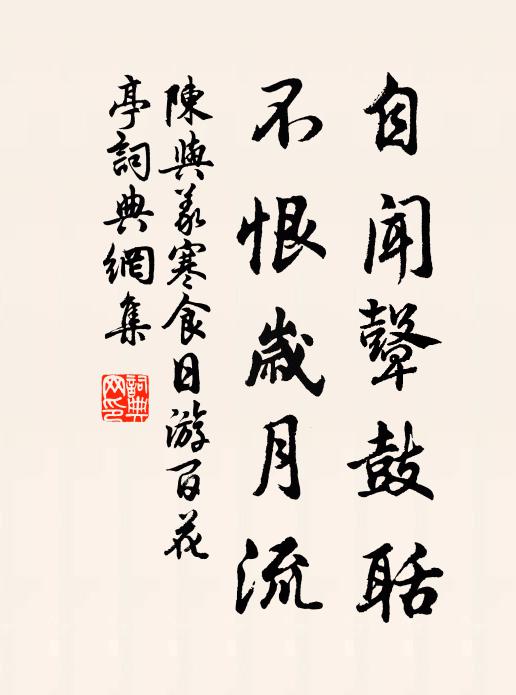 自聞鼙鼓聒
不恨歲月流
陳與義寒食日游百花
亭詞典網集
詞典
网印